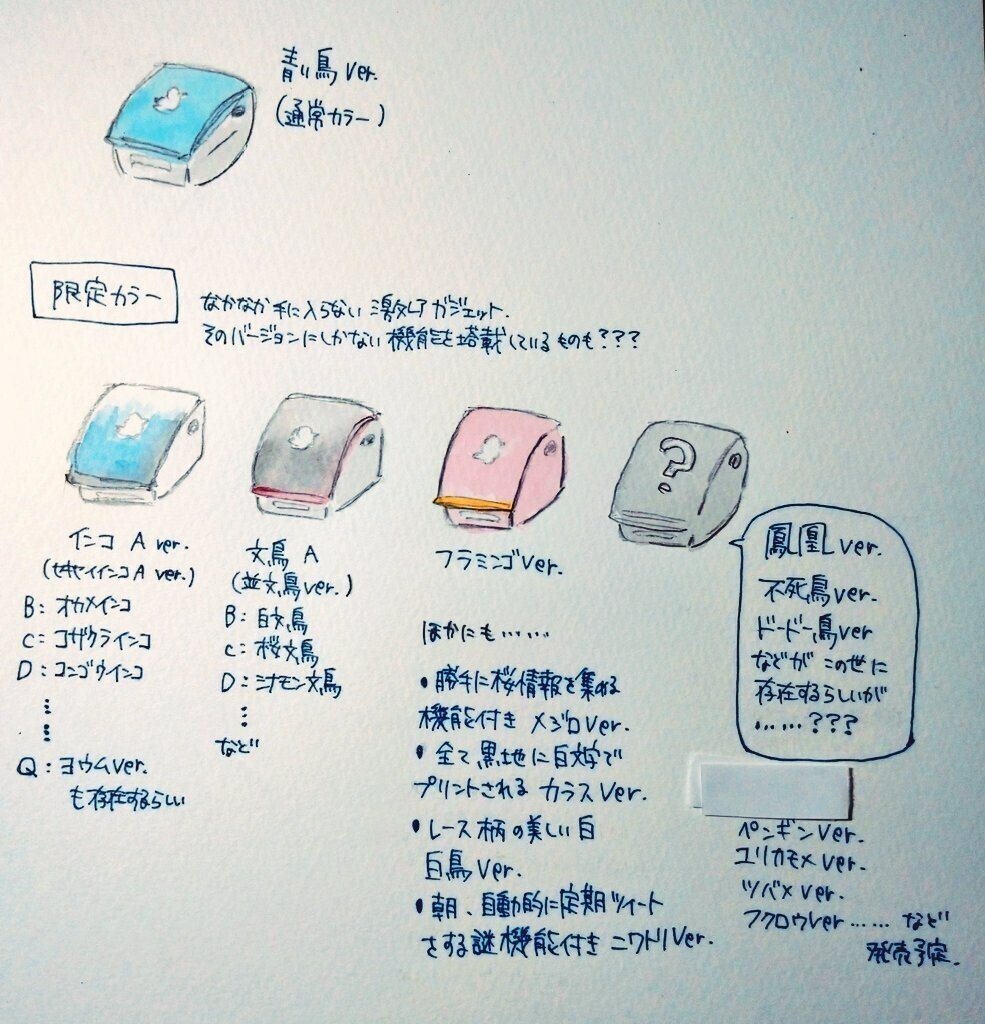 青い鳥 ver.
(通常カラー)
限定カラー
なかなか手に入らない激レアガジェット.
そのバージョンにしかない機能を搭載しているものも???
インコ A ver.
(セキセイインコA ver.)
B: オカメインコ
C: コザクラインコ
D: コンゴウインコ
⋮
⋮
Q: ヨウムver.
も存在するらしい
文鳥 A
(並文鳥ver.)
B: 白文鳥
C: 桜文鳥
D: シナモン文鳥
⋮
など
フラミンゴver.
ほかにも……
•勝手に桜情報を集める
機能付き メジロver.
• 全て黒地に白文字で
プリントされる カラスver.
•レース柄の美しい白
白鳥ver.
•朝、自動的に定期ツイート
をする謎機能付き ニワトリver.
?
鳳凰ver.
不死鳥ver.
ドードー鳥ver
などが この世に
存在するらしいが
……???
ペンギンver.
ユリカモメver.
ツバメver.
フクロウver…… など
発売予定.